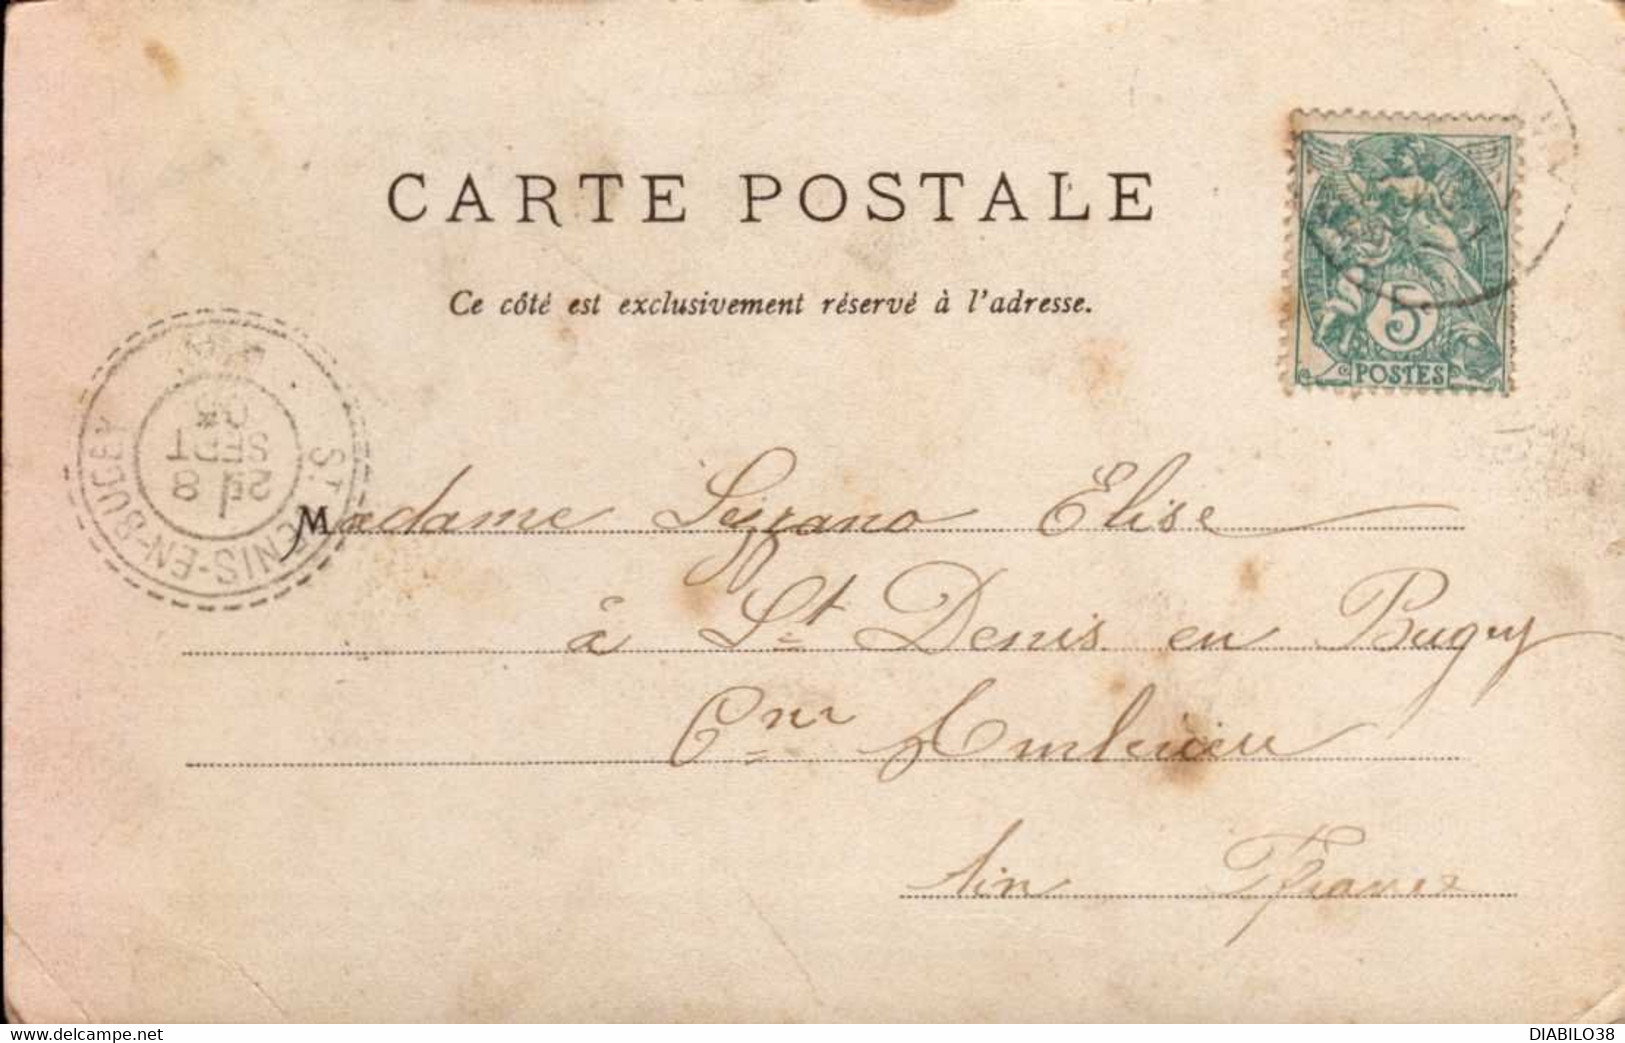 CARTE POSTALE
Ce côté est exclusivement réservé à l'adresse.
5
POSTES
ST DENIS-EN-BUGEY
AIN
2E 8
SEPT
Madame Elise
à St Denis en Bugey
Cne Ambérieu
Ain France
www.delcampe.net
DIABILO38